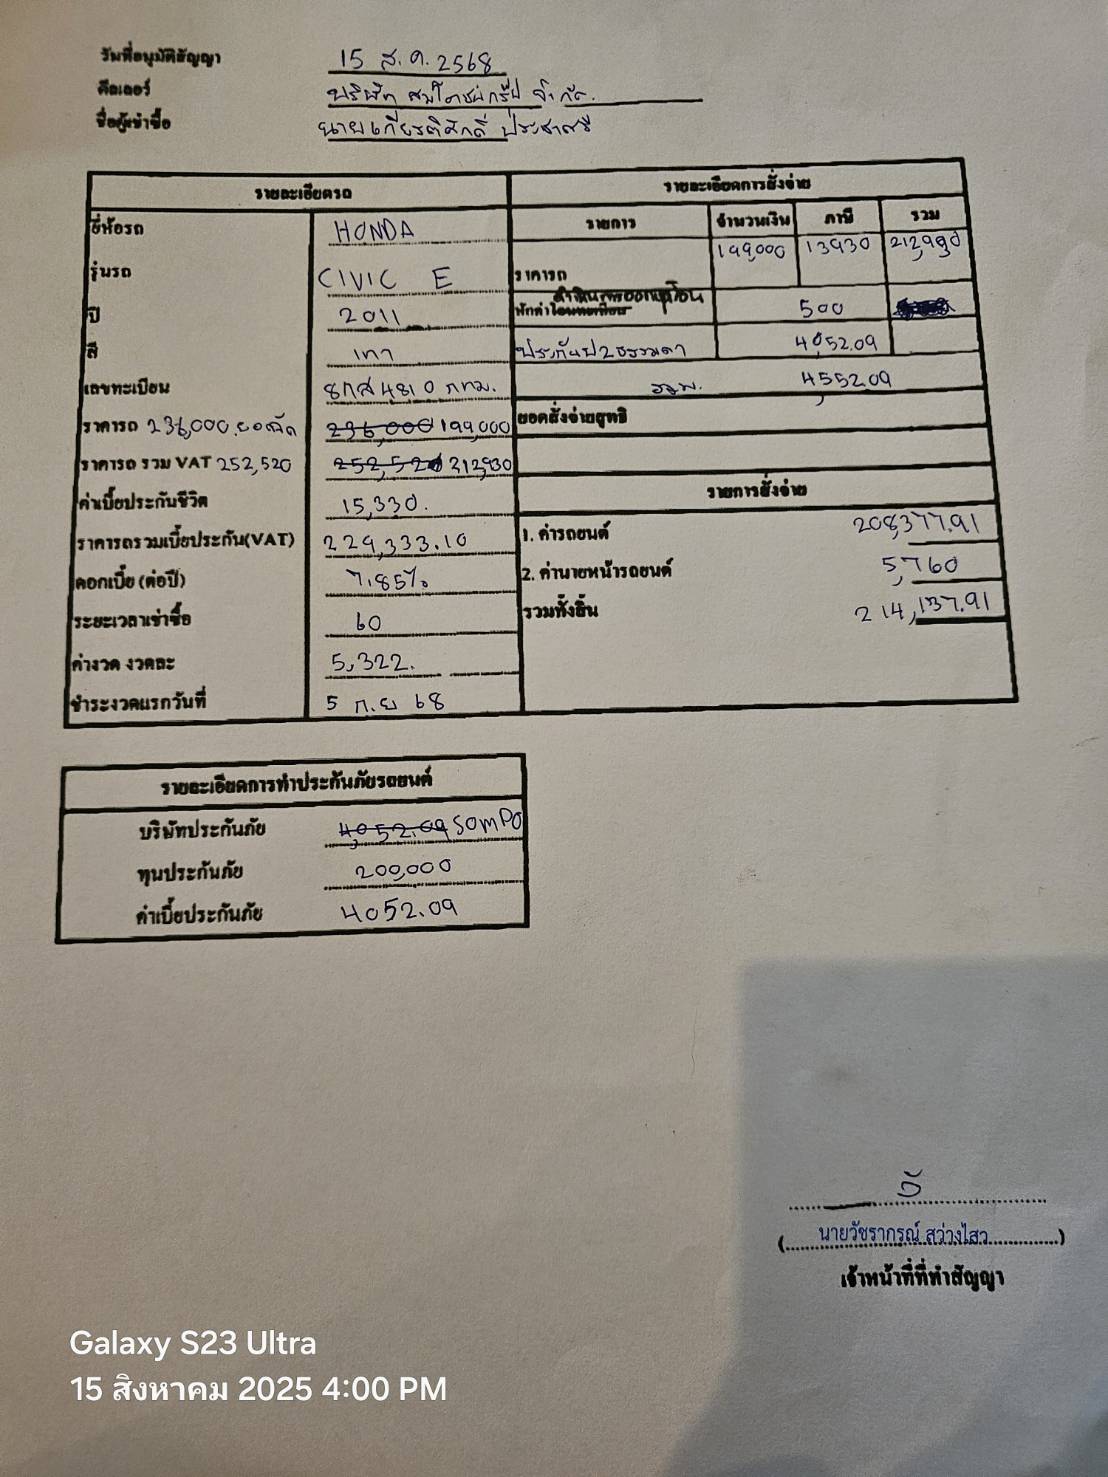 วันที่อนุมัติสัญญา 15 ส.ค. 2568
ดีลเลอร์ บริษัท สมโภชน์กรุ๊ป จำกัด.
ชื่อผู้เช่าซื้อ นายเกียรติศักดิ์ ประชาศรี
รายละเอียดรถ
ยี่ห้อรถ HONDA
รุ่นรถ CIVIC E
ปี 2011
สี เทา
เลขทะเบียน 8กส 4810 กทม.
ราคารถ 236,000 ยอดจัด 236,000 199,000
ราคารถ รวม VAT 252,520 252,520 212,930
ค่าเบี้ยประกันชีวิต 15,330.
ราคารถรวมเบี้ยประกัน(VAT) 229,333.10
ดอกเบี้ย (ต่อปี) 7.85%
ระยะเวลาเช่าซื้อ 60
ค่างวด งวดละ 5,322.
ชำระงวดแรกวันที่ 5 ก.ย 68
รายละเอียดการสั่งจ่าย
รายการ จำนวนเงิน ภาษี รวม
ราคารถ 199,000 13930 212,930
ดำเนินการออกเล่มโอน
หักค่าโอนทะเบียน 500
ประกันป2ธรรมดา 4,052.09
รวม. 4,552.09
ยอดสั่งจ่ายสุทธิ
รายการสั่งจ่าย
1. ค่ารถยนต์ 208,377.91
2. ค่านายหน้ารถยนต์ 5,760
รวมทั้งสิ้น 214,137.91
รายละเอียดการทำประกันภัยรถยนต์
บริษัทประกันภัย 4,052.09 SOMPO
ทุนประกันภัย 200,000
ค่าเบี้ยประกันภัย 4052.09
(นายวัชรากรณ์ สว่างไสว)
เจ้าหน้าที่ที่ทำสัญญา
Galaxy S23 Ultra
15 สิงหาคม 2025 4:00 PM